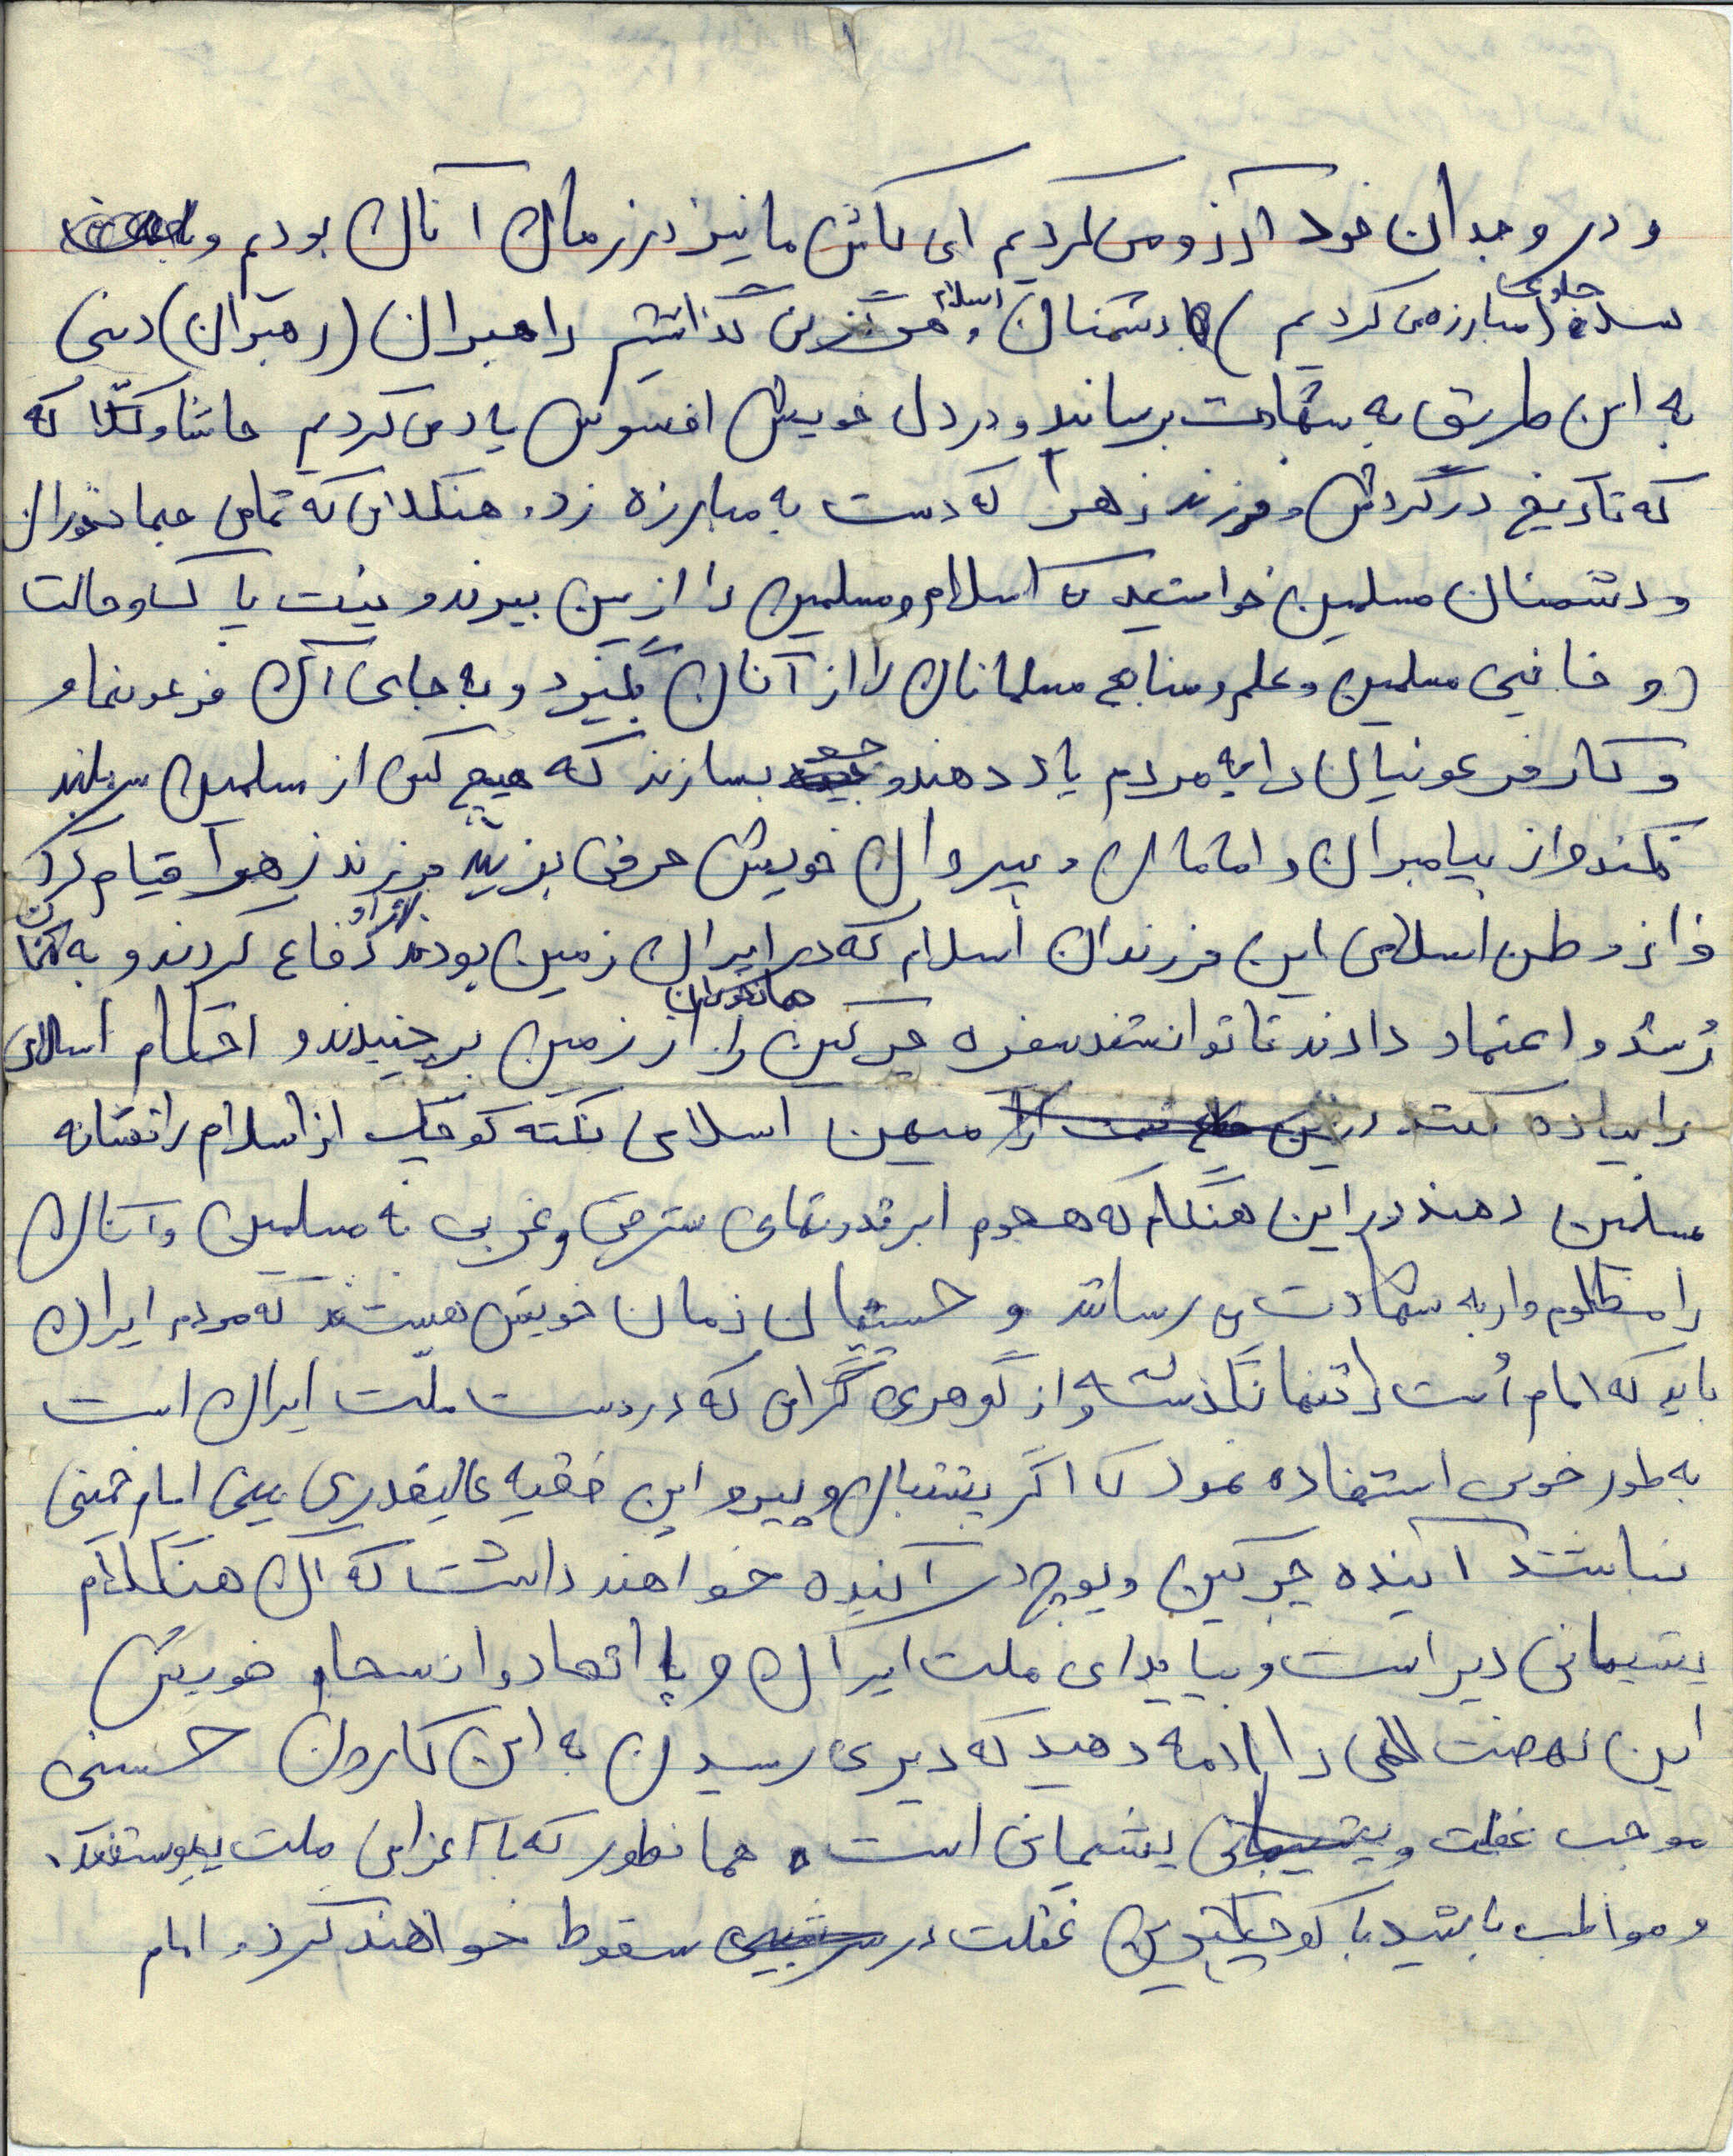 و در وجدان خود آرزو می کردیم ای کاش ما نیز در زمان آنان بودیم و
جلوی
اسلام
مبارزه می کردیم) با دشمنان و هرگز نمی گذاشتیم راهبران (رهبران) دینی
به این طریق به شهادت برسانید و در دل خویش افسوس یاد می کردیم حاشا و کلّا که
که تاریخ در گردش و فرزند زهرا که دست به مبارزه زد. هنگامی که تمامی جهانخوران
و دشمنان مسلمین خواستند تا اسلام و مسلمین را از بین ببرند و نیت پاک و حالت
و مسلمین و علم و منابع مسلمانان را از آنان بگیرد و به جای آن فرعونها و
و کار فرعونیان را به مردم یاد دهند و جو بسازند که هیچ کس از مسلمین سر بلند
نکند و از پیامبران و امامان و پیروان خویش حرفی بزنید فرزند زهرا قیام کرد
و از وطن اسلامی این فرزندان اسلام که در ایران زمین بودند دفاع کردند و به آنان
جهانخواران
رُشد و اعتماد دادند تا توانستند سفره چرکین را از زمین برچینند و احکام اسلامی
را پیاده کنند در میهن اسلامی نکته کوچک از اسلام را نشانه
مسلمین دهند در این هنگام که هجوم ابرقدرتهای شرقی و غربی به مسلمین و آنان
را مظلوم وار به شهادت می رسانند و حسینیان زمان خویش هستند که مردم ایران
باید که امام اُمت را تنها نگذاشته و از گوهری گرامی که در دست ملّت ایران است
به طور خوبی استفاده نمود تا اگر پشتیبان و پیرو این فقیه عالیقدری یعنی امام خمینی
نباشند آینده چرکین و پوچ در آینده خواهند داشت که آن هنگام
پشیمانی دیر است و بیایید ای ملت ایران و با اتحاد و انسجام خویش
این نهضت الهی را ادامه دهید که دیری رسیدن به این کاروان حسینی
موجب غفلت و پشیمانی است. همانطور که با اعزامی ملت پیوستند.
و مواظب باشید با کوچکترین غفلت در سقوط خواهند کرد. امام